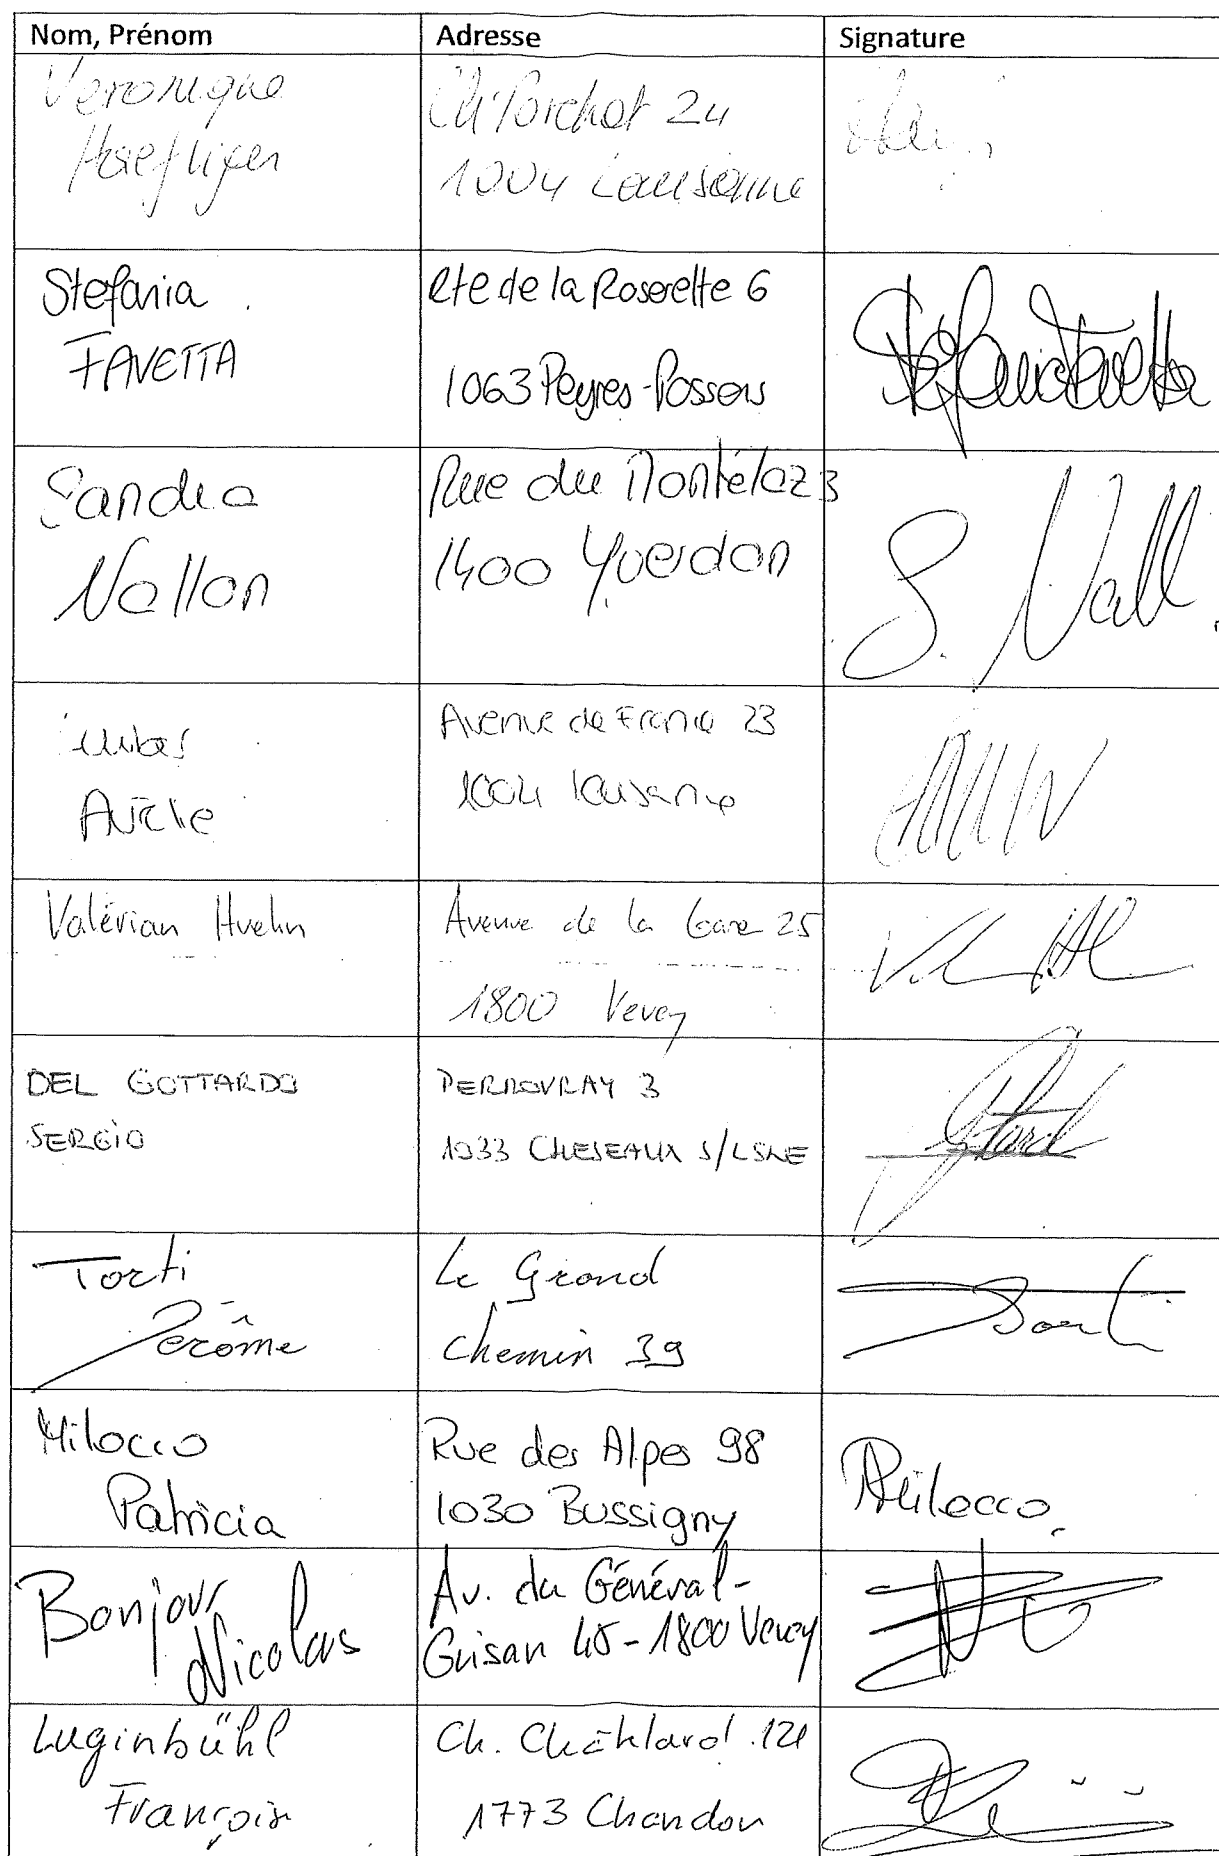 Nom, Prénom
Adresse
Signature
Veronique
Haefliger
Ch. Porchat 24
1004 Lausanne
Stefania
FAVETTA
Rte de la Roserette 6
1063 Peyres-Possens
Sandra
Nallon
Rue du Montélaz 3
1400 Yverdon
S. Nall
Aurélie
Avenue de France 23
1004 Lausanne
Valérian Huehn
Avenue de la Gare 25
1800 Vevey
DEL GOTTARDO
SERGIO
PERROVRAY 3
1033 CHESEAUX S/LSNE
Torti
Jérôme
Le Grand
Chemin 39
Torti
Milocco
Patricia
Rue des Alpes 98
1030 Bussigny
PMilocco.
Bonjour
Nicolas
Av. du Général-
Guisan 45 - 1800 Vevey
Luginbühl
François
Ch. Châtelard 12
1773 Chandon